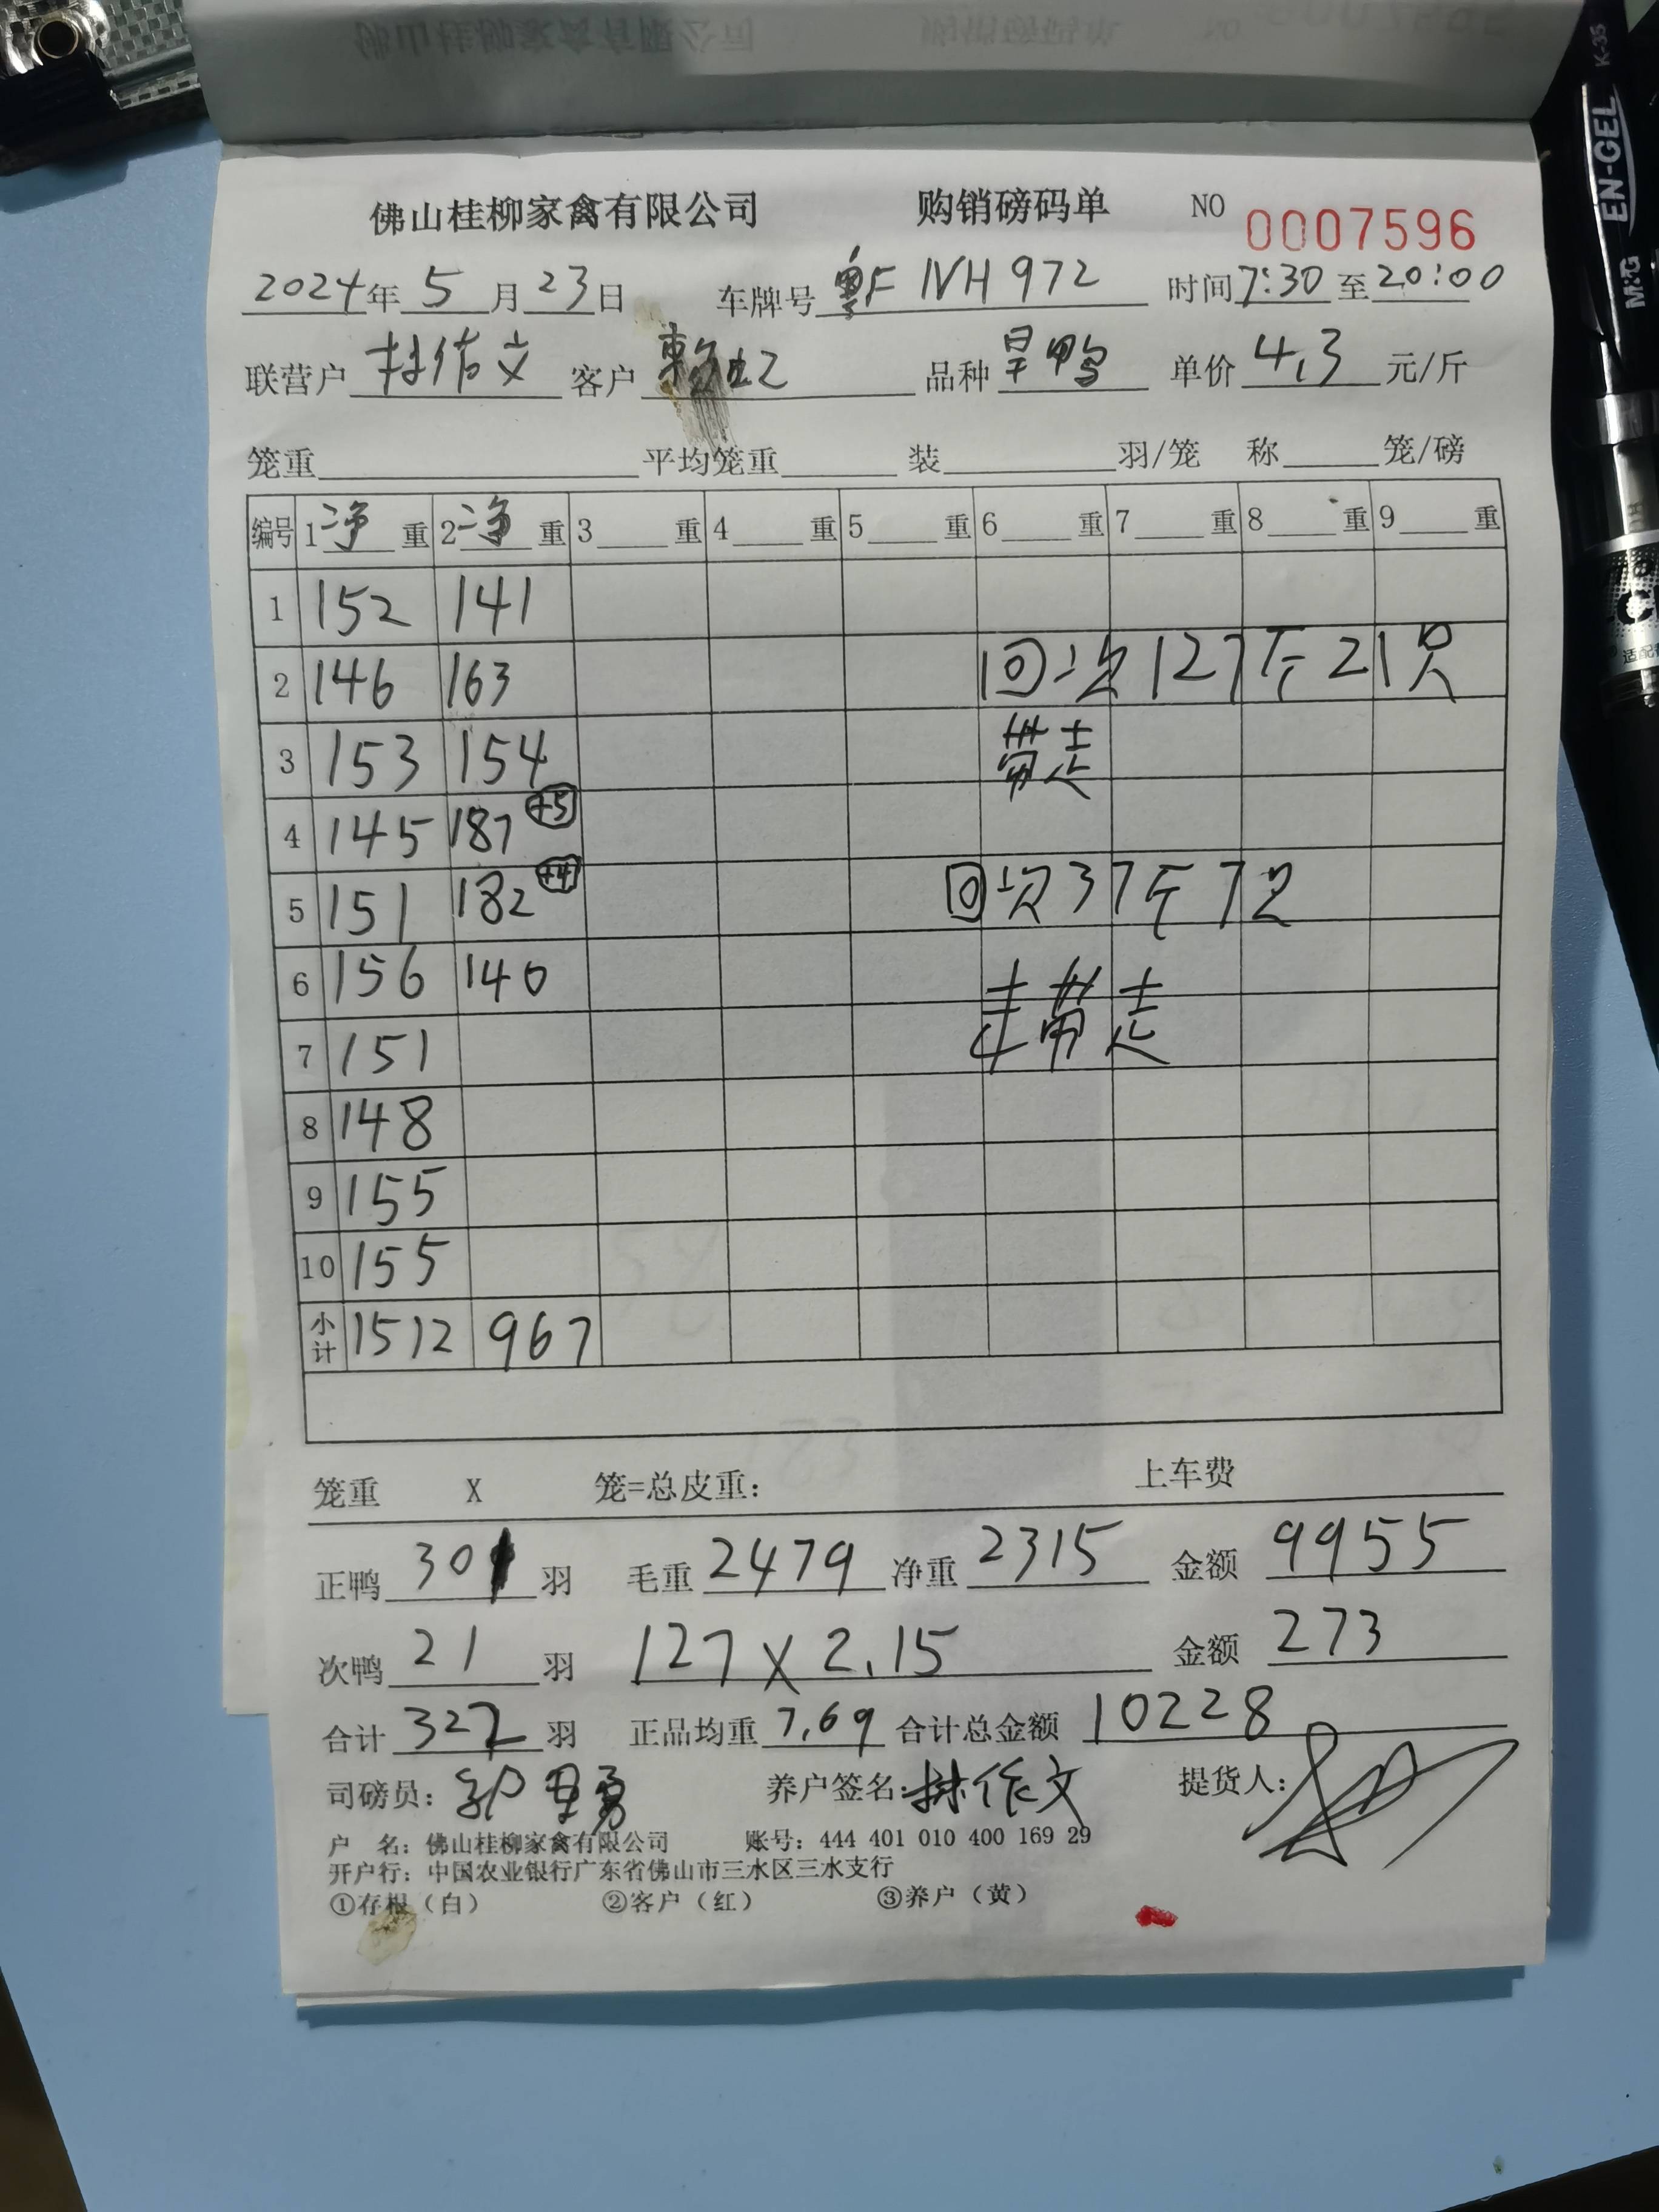 佛山桂柳家禽有限公司 购销磅码单 NO 0007596
2024年 5 月 23 日 车牌号 粤F NH972 时间 7:30 至 20:00
联营户 林作文 客户 品种 旱鸭 单价 4.3 元/斤
笼重 平均笼重 装 羽/笼 称 笼/磅
编号 1 净 重 2 净 重 3 重 4 重 5 重 6 重 7 重 8 重 9 重
1 152 141
2 146 163 回次127斤21只
3 153 154 带走
4 145 187 +5
5 151 182 +4 回次37斤7只
6 156 140
未带走
7 151
8 148
9 155
10 155
小计 1512 967
笼重 X 笼=总皮重: 上车费
正鸭 301 羽 毛重 2479 净重 2315 金额 9955
次鸭 21 羽 127 X 2.15 金额 273
合计 322 羽 正品均重 7.69 合计总金额 10228
司磅员: 养户签名: 林作文 提货人:
户 名: 佛山桂柳家禽有限公司 账号: 444 401 010 400 169 29
开户行: 中国农业银行广东省佛山市三水区三水支行
①存根(白) ②客户(红) ③养户(黄)
M&G EN-GEL K-35